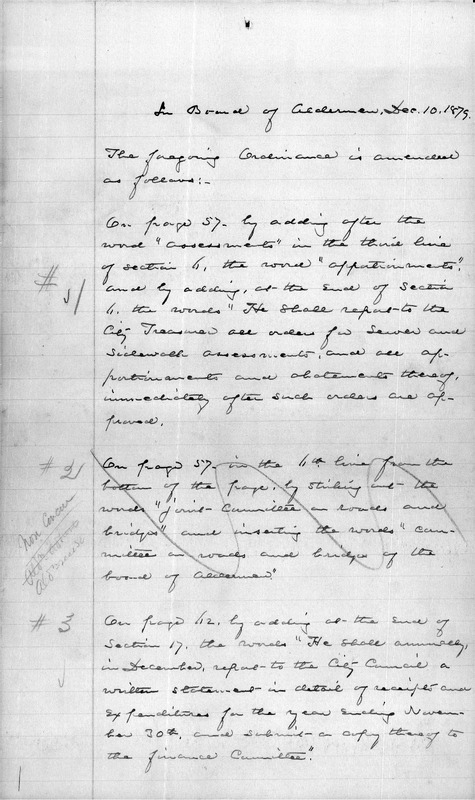 In Board of Aldermen, Dec. 10. 1879.
The foregoing Ordinance is amended
as follows:-
# 1
On page 57- by adding after the
word "assessments" in the third line
of section 11, the word "apportionments",
and by adding, at the end of Section
11, the words "He shall report to the
City Treasurer all orders for Sewer and
Sidewalk assessments, and all ap-
portionments and abatements thereof,
immediately after such orders are ap-
proved.
# 2
On page 57- in the 11th line from the
bottom of the page, by striking out the
words "joint Committee on roads and
bridges" and inserting the words "com-
mittee on roads and bridges of the
board of Aldermen."
Non Concur
# 3
On page 62, by adding at the end of
Section 17, the words "He shall annually,
in December, report to the City Council a
written statement in detail of receipts and
expenditures for the year ending Novem-
ber 30th, and submit a copy thereof to
the finance Committee".